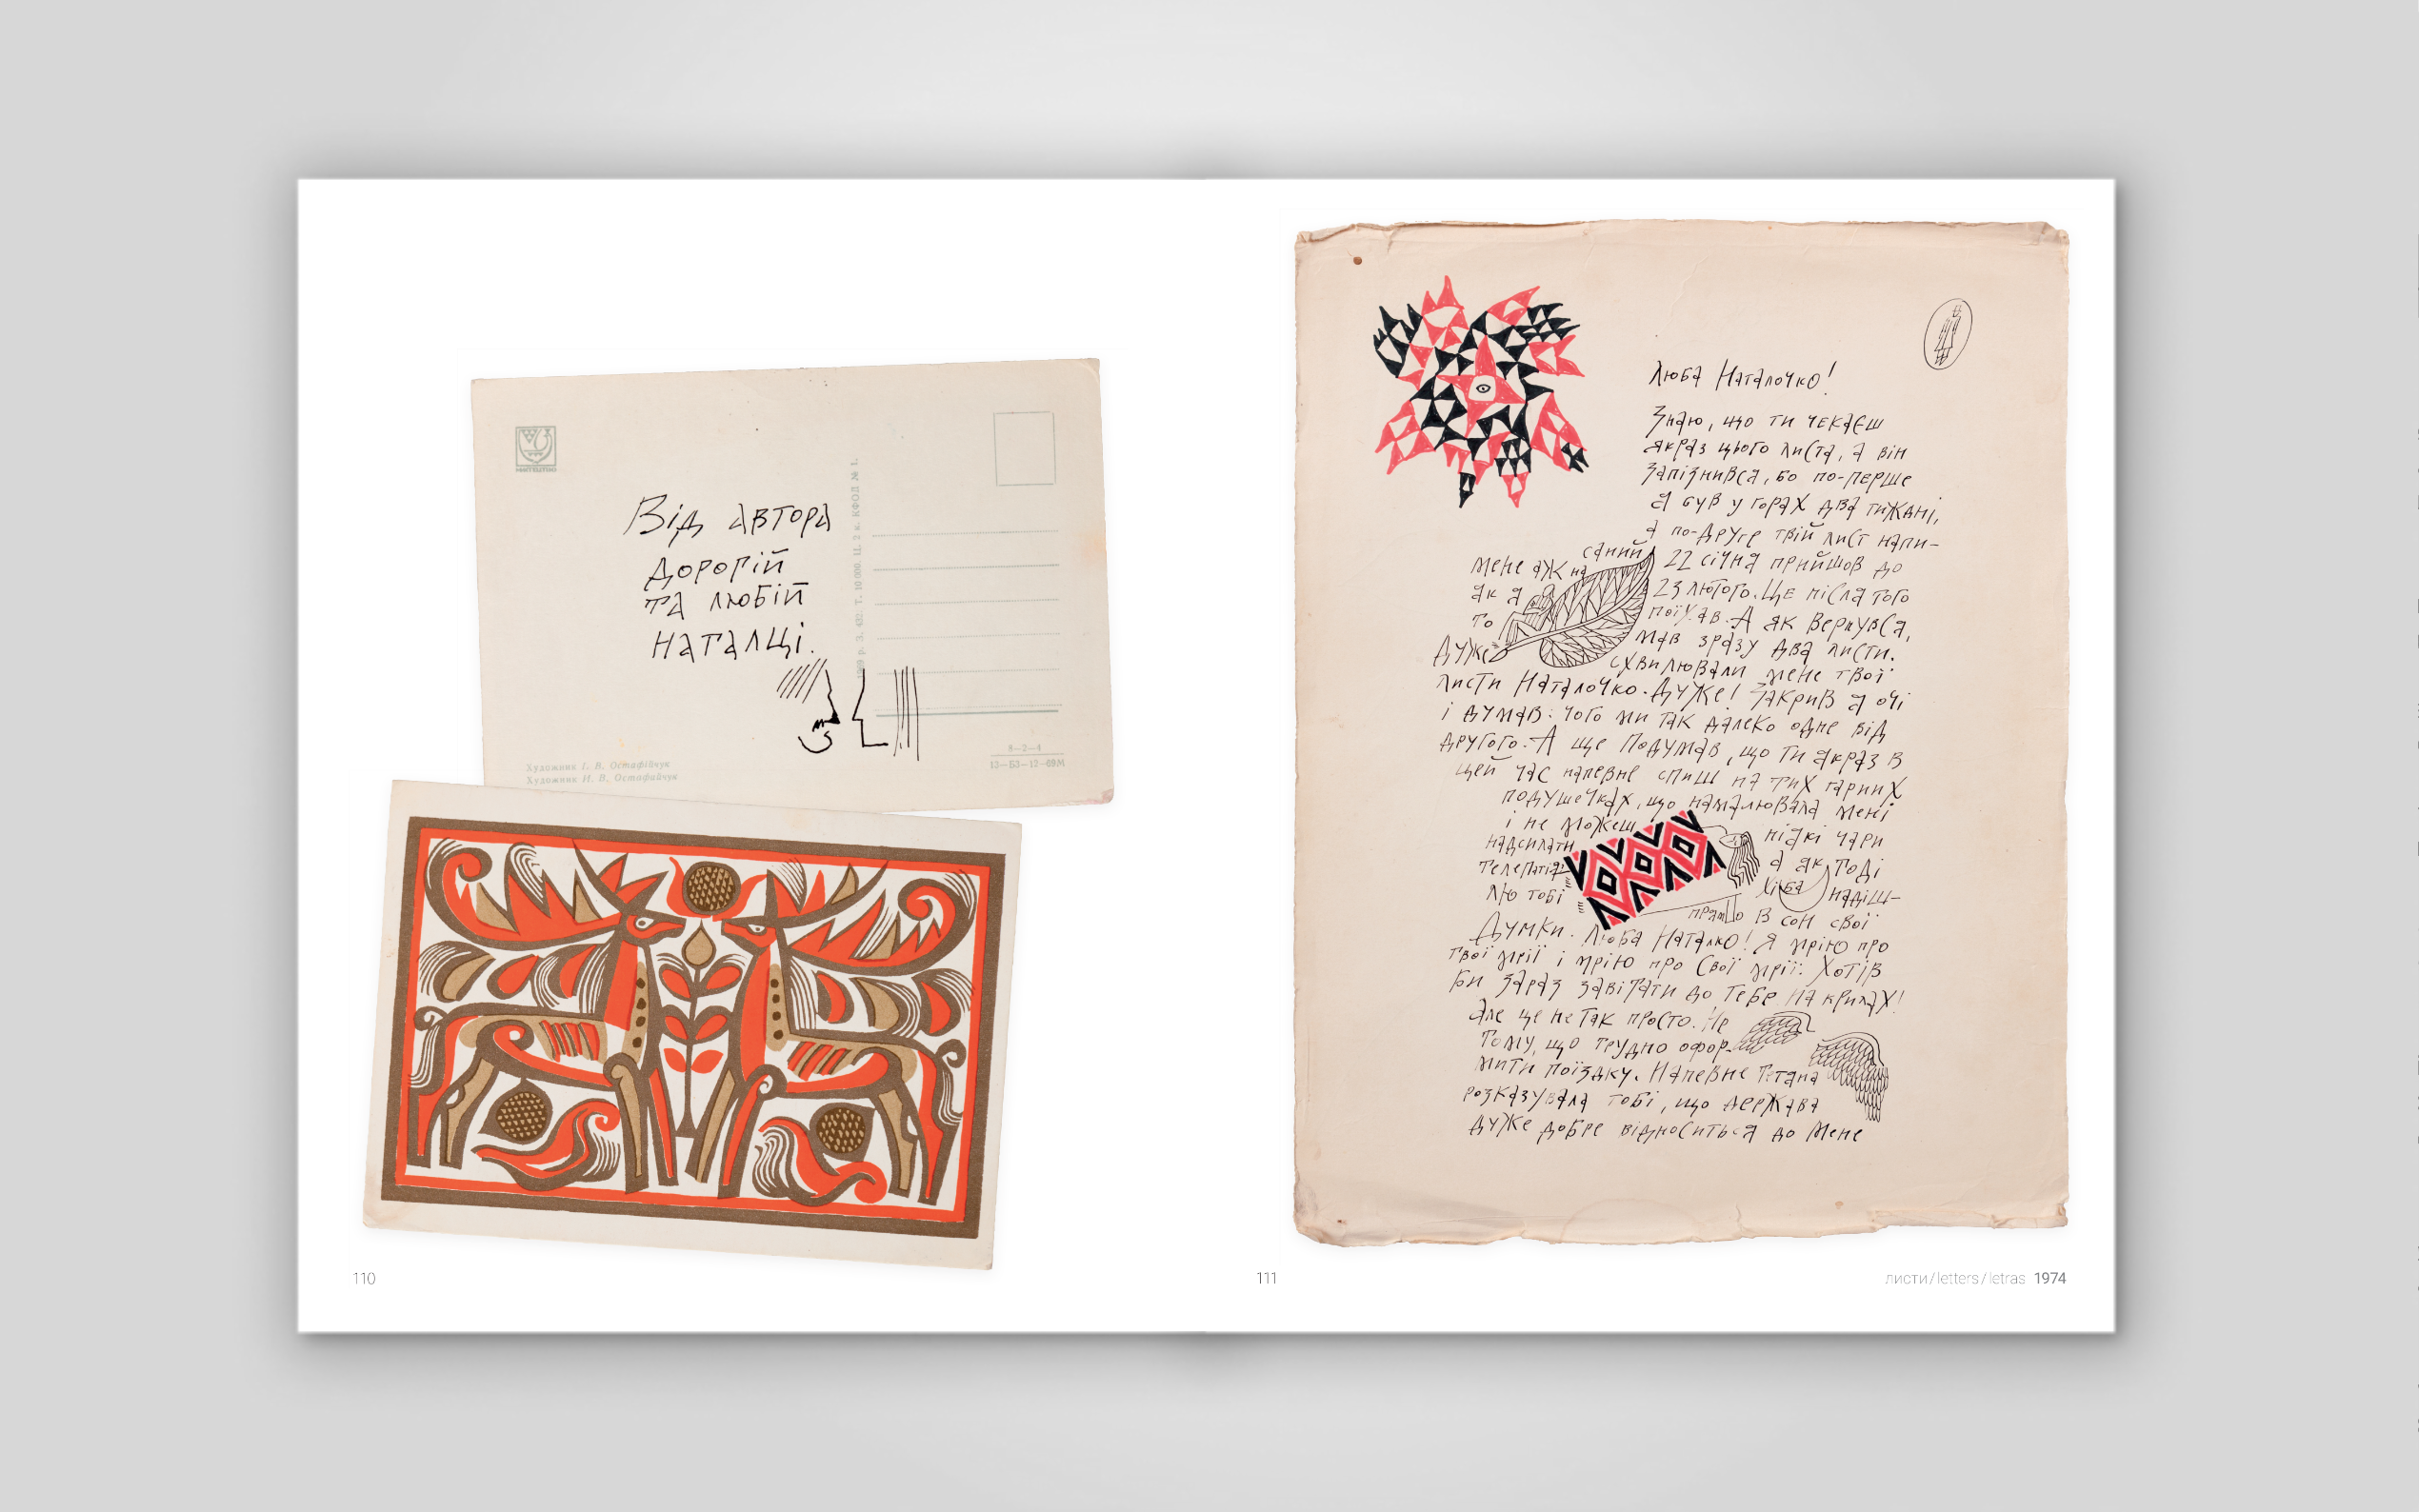 МИСТЕЦТВО
Від автора
дорогій
та любій
Наталці.
Т. 10 000. Ц. 2 к. КФОД № 1.
Художник І. В. Остафійчук
Художник И. В. Остафийчук
8—2—4
12—БЗ—12—69М
110
Люба Наталочко!
Знаю, що ти чекаєш
якраз цього листа, а він
запізнився, бо по-перше
я був у горах два тижні,
а по-друге твій лист напи-
саний 22 січня прийшов до
мене аж на 23 лютого. Ще після того
як я поїхав. А як вернувся,
то мав зразу два листи.
Дуже схвилювали мене твої
листи Наталочко. Дуже! Закрив я очі
і думав: чого ми так далеко одне від
другого. А ще подумав, що ти якраз в
цей час напевне спиш на тих гарних
подушечках, що намалювала мені
і не можеш ніякі чари
надсилати а як тоді
телепатія хіба надіш-
лю тобі прямо в сон свої
Думки. Люба Наталко! Я мрію про
твої мрії і мрію про свої мрії. Хотів
би зараз завітати до тебе на крилах!
Але це не так просто. Не
тому, що трудно офор-
мити поїздку. Напевне Тетяна
розказувала тобі, що держава
дуже добре відноситься до мене
111
листи/letters/letras 1974